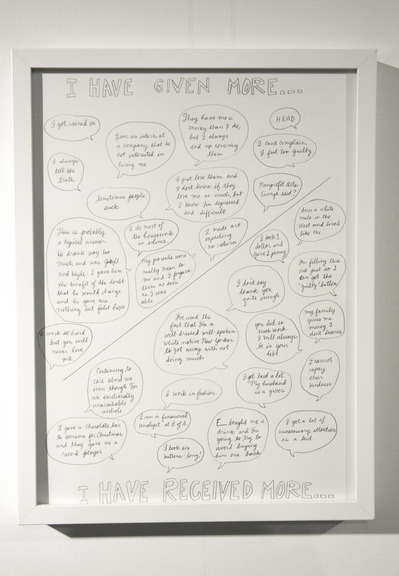 I HAVE GIVEN MORE...
I got ruined on
I am an intern, at
a company that is
not interested in
hiring me
They have more
money than I do,
but I always
end up covering
them
HEAD
I can't complain,
I feel too guilty
I always
tell the
truth
Sometimes people
suck
I put love them and
I don't know if they
love me as much, but
I know I'm depressed
and difficult
Nonprofit Arts.
Enough said?
This is probably
a typical answer
he drank way too
much and was
and I gave him
the benefit of the doubt
that he would change
and he gave me
nothing but false hope
I do most of
the housework
in silence
I made art
expecting
no returns
My parents were
really mean to
me and I forgave
them as soon
as I was
able
I took 1
dollar and
gave 1 penny
born a white
male in the
West and lived
like one
I'm filling this
one just so I
can get the
'guilty' button
I don't say
thank you
quite enough
I work so hard
but you will
never love
me
I've used the
fact that I'm a
well dressed well-spoken
white native New Yorker
to get away with not
doing much
you did so
much work.
I will always
be in your
debt
my family
gives me
money I
don't deserve
Continuing to
care about me
even though I'm
an emotionally
unavailable
asshole
I work in fashion.
I get laid a lot.
My husband
is a giver
I cannot
repay
their
kindness
I gave a chocolate bar
to someone for Christmas
and they gave me a
record player
I am a financial
analyst at
I took six
buttons-long!
E bought me a
drink and I'm
going to try to
avoid buying
him one back
I got a lot of
unnecessary attention
as a kid
I HAVE RECEIVED MORE...